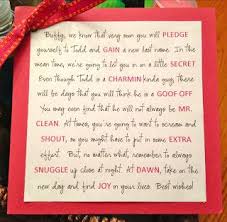 Buffy, we know that very soon you will PLEDGE
yourself to Todd and GAIN a new last name. In the
mean time, we're going to let you in on a little SECRET.
Even though Todd is a CHARMIN kinda guy, there
will be days that you will think he is a GOOF OFF.
You may even find that he will not always be MR.
CLEAN. At times, you're going to want to scream and
SHOUT, so you might have to put in some EXTRA
effort. But, no matter what, remember to always
SNUGGLE up close at night. At DAWN, take on the
new day and find JOY in your lives. Best wishes!